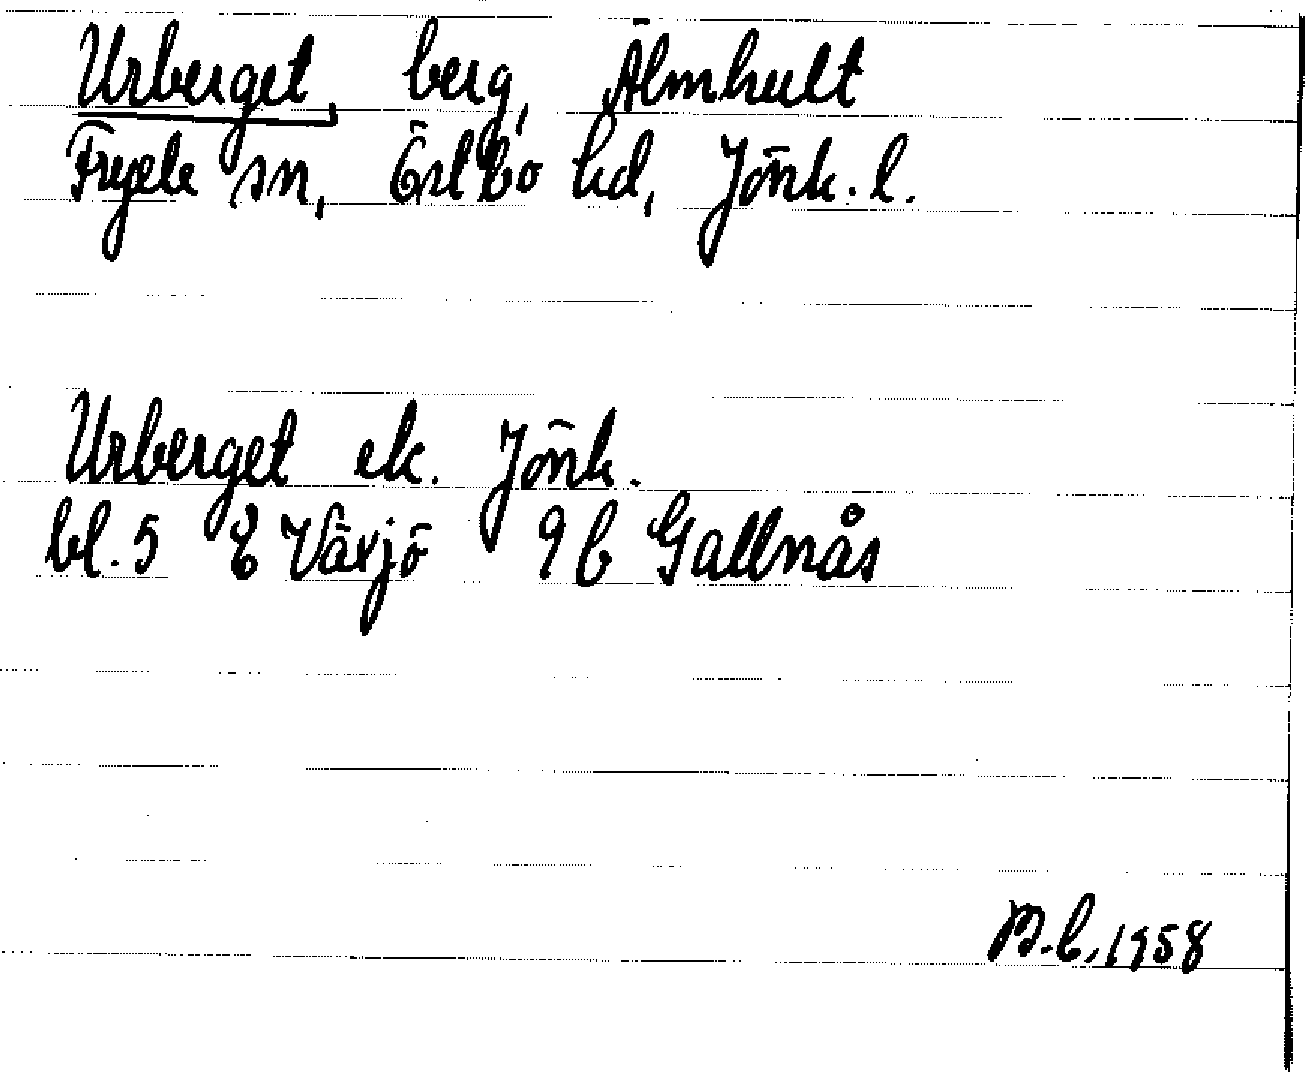 Urberget, berg, Älmhult
Fryele sn, Östbo hd, Jönk. l.
Urberget ek. Jönk.
bl. 5 E Växjö 9b Gallnås
P.b. 1958